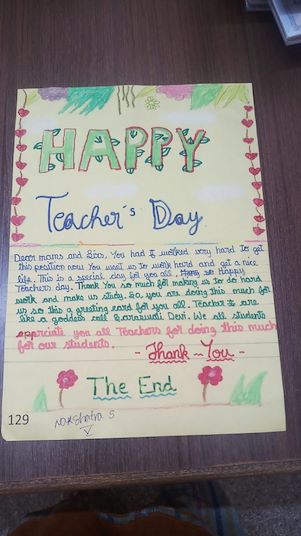 HAPPY
Teacher's Day
Dear mams and Sirs, You had worked very hard to get
this position now You want us to work hard and get a nice
life. This is a special day for you all. so Happy
Teachers day. Thank You so much for making us to do hard
work and make us study. So, you are doing this much for
us so this a greeting card for you all. Teacher is are
like a goddess called Saraswati Devi. We all students
appreciate you all Teachers for doing this much
for our students.
- Thank - You -
The End
129
S
V